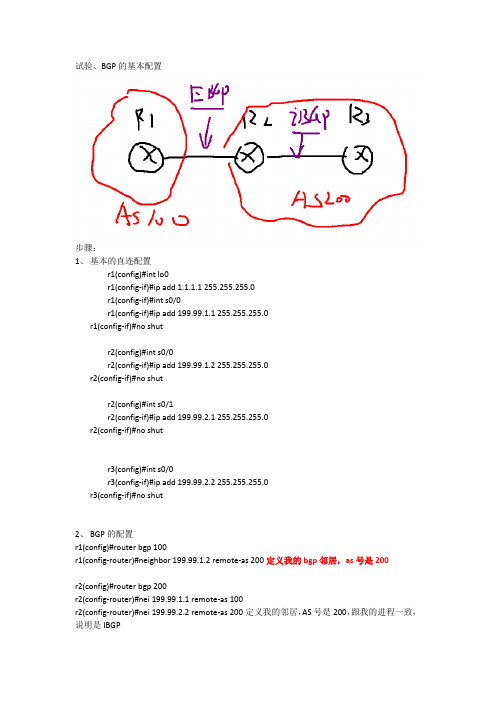 试验、BGP 的基本配置
EBGP
R1
R2
iBGP
R3
AS100
AS200
步骤:
1、 基本的直连配置
r1(config)#int lo0
r1(config-if)#ip add 1.1.1.1 255.255.255.0
r1(config-if)#int s0/0
r1(config-if)#ip add 199.99.1.1 255.255.255.0
r1(config-if)#no shut
r2(config)#int s0/0
r2(config-if)#ip add 199.99.1.2 255.255.255.0
r2(config-if)#no shut
r2(config)#int s0/1
r2(config-if)#ip add 199.99.2.1 255.255.255.0
r2(config-if)#no shut
r3(config)#int s0/0
r3(config-if)#ip add 199.99.2.2 255.255.255.0
r3(config-if)#no shut
2、 BGP 的配置
r1(config)#router bgp 100
r1(config-router)#neighbor 199.99.1.2 remote-as 200 定义我的 bgp 邻居，as 号是 200
r2(config)#router bgp 200
r2(config-router)#nei 199.99.1.1 remote-as 100
r2(config-router)#nei 199.99.2.2 remote-as 200 定义我的邻居，AS 号是 200，跟我的进程一致，
说明是 IBGP